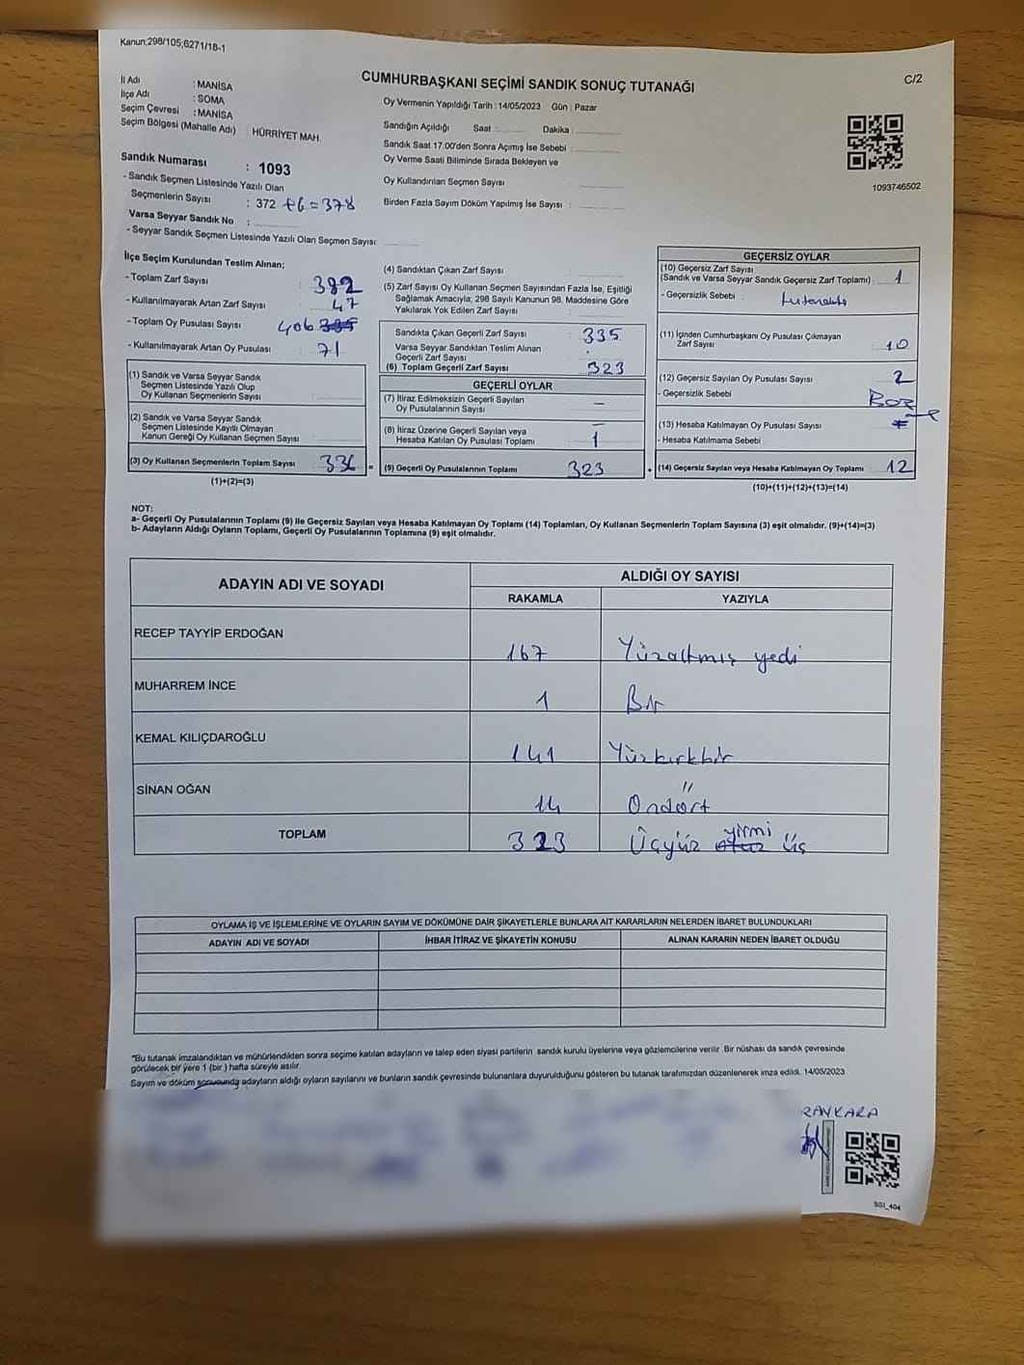 Kanun;298/105;6271/18-1
C/2
CUMHURBAŞKANI SEÇİMİ SANDIK SONUÇ TUTANAĞI
İl Adı : MANİSA
İlçe Adı : SOMA
Seçim Çevresi : MANİSA
Seçim Bölgesi (Mahalle Adı) HÜRRİYET MAH.
Sandık Numarası : 1093
- Sandık Seçmen Listesinde Yazılı Olan
Seçmenlerin Sayısı : 372 +6=378
Varsa Seyyar Sandık No :
- Seyyar Sandık Seçmen Listesinde Yazılı Olan Seçmen Sayısı:
Oy Vermenin Yapıldığı Tarih : 14/05/2023 Gün : Pazar
Sandığın Açıldığı Saat : Dakika :
Sandık Saat 17.00'den Sonra Açmış İse Sebebi :
Oy Verme Saati Bitiminde Sırada Bekleyen ve
Oy Kullandırılan Seçmen Sayısı
Birden Fazla Sayım Döküm Yapılmış İse Sayısı :
1093746502
İlçe Seçim Kurulundan Teslim Alınan;
- Toplam Zarf Sayısı 382
- Kullanılmayarak Artan Zarf Sayısı 47
- Toplam Oy Pusulası Sayısı 406
- Kullanılmayarak Artan Oy Pusulası 71
(1) Sandık ve Varsa Seyyar Sandık
Seçmen Listesinde Yazılı Olup
Oy Kullanan Seçmenlerin Sayısı :
(2) Sandık ve Varsa Seyyar Sandık
Seçmen Listesinde Kayıtlı Olmayan
Kanun Gereği Oy Kullanan Seçmen Sayısı :
(3) Oy Kullanan Seçmenlerin Toplam Sayısı 336
(1)+(2)=(3)
(4) Sandıktan Çıkan Zarf Sayısı :
(5) Zarf Sayısı Oy Kullanan Seçmen Sayısından Fazla İse, Eşitliği
Sağlamak Amacıyla; 298 Sayılı Kanunun 98. Maddesine Göre
Yakılarak Yok Edilen Zarf Sayısı :
Sandıkta Çıkan Geçerli Zarf Sayısı : 335
Varsa Seyyar Sandıktan Teslim Alınan
Geçerli Zarf Sayısı :
(6) Toplam Geçerli Zarf Sayısı : 323
GEÇERLİ OYLAR
(7) İtiraz Edilmeksizin Geçerli Sayılan
Oy Pusulalarının Sayısı : –
(8) İtiraz Üzerine Geçerli Sayılan veya
Hesaba Katılan Oy Pusulası Toplamı : 1
= (9) Geçerli Oy Pusulalarının Toplamı 323
GEÇERSİZ OYLAR
(10) Geçersiz Zarf Sayısı
(Sandık ve Varsa Seyyar Sandık Geçersiz Zarf Toplamı) : 1
- Geçersizlik Sebebi :
(11) İçinden Cumhurbaşkanı Oy Pusulası Çıkmayan
Zarf Sayısı : 10
(12) Geçersiz Sayılan Oy Pusulası Sayısı 2
- Geçersizlik Sebebi
(13) Hesaba Katılmayan Oy Pusulası Sayısı
- Hesaba Katılmama Sebebi
+ (14) Geçersiz Sayılan veya Hesaba Katılmayan Oy Toplamı 12
(10)+(11)+(12)+(13)=(14)
NOT:
a- Geçerli Oy Pusulalarının Toplamı (9) ile Geçersiz Sayılan veya Hesaba Katılmayan Oy Toplamı (14) Toplamları, Oy Kullanan Seçmenlerin Toplam Sayısına (3) eşit olmalıdır. (9)+(14)=(3)
b- Adayların Aldığı Oyların Toplamı, Geçerli Oy Pusulalarının Toplamına (9) eşit olmalıdır.
ADAYIN ADI VE SOYADI ALDIĞI OY SAYISI
RAKAMLA YAZIYLA
RECEP TAYYİP ERDOĞAN 167 Yüzaltmış yedi
MUHARREM İNCE 1 Bir
KEMAL KILIÇDAROĞLU 141 Yüzkırkbir
SİNAN OĞAN 14 Ondört
TOPLAM 323 Üçyüz yirmi Üç
OYLAMA İŞ VE İŞLEMLERİNE VE OYLARIN SAYIM VE DÖKÜMÜNE DAİR ŞİKAYETLERLE BUNLARA AİT KARARLARIN NELERDEN İBARET BULUNDUKLARI
ADAYIN ADI VE SOYADI İHBAR İTİRAZ VE ŞİKAYETİN KONUSU ALINAN KARARIN NEDEN İBARET OLDUĞU
*Bu tutanak imzalandıktan ve mühürlendikten sonra seçime katılan adayların ve talep eden siyasi partilerin sandık kurulu üyelerine veya gözlemcilerine verilir. Bir nüshası da sandık çevresinde
görülecek bir yere 1 (bir) hafta süreyle asılır.
Sayım ve döküm sonucunda adayların aldığı oyların sayılarını ve bunların sandık çevresinde bulunanlara duyurulduğunu gösteren bu tutanak tarafımızdan düzenlenerek imza edildi. 14/05/2023